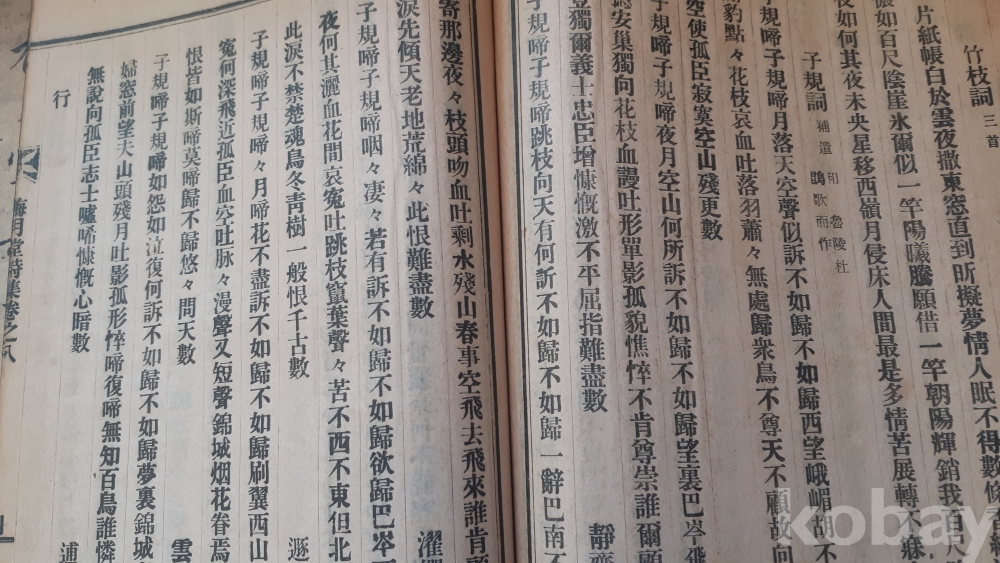 竹枝詞 三首
片紙帳白於雲夜撤東窓直到昕擬夢情人眠不得數
濃如百尺陰崖氷爾似一竿陽曦騰願借一竿朝陽輝銷我百
夜如何其夜未央星移西嶺月侵床人間最是多情苦展轉不寐
子規詞 補遺 和魯陵杜鵑歌而作
子規啼子規啼月落天空聲似訴不如歸不如歸西望峨嵋胡不
豹點々花枝哀血吐落羽蕭々無處歸衆鳥不尊天不顧故向
空使孤臣寂寞空山殘更數
子規啼子規啼夜月空山何所訴不如歸不如歸望裏巴岑飛
安巢獨向花枝血謾吐形單影孤貌憔悴不肯尊崇誰爾顧
登獨爾義士忠臣增慷慨激不平屈指難盡數
靜
子規啼子規啼跳枝向天有何訴不如歸不如歸一辭巴南不
寄那邊夜々枝頭吻血吐剩水殘山春事空飛去飛來誰肯
淚先傾天老地荒綿々此恨難盡數
濯
子規啼子規啼咽々凄々若有訴不如歸不如歸欲歸巴岑
夜何其灑血花間哀寃吐跳枝竄葉聲々苦不西不東但北
此淚不禁楚魂鳥冬靑樹一般恨千古數
遯
子規啼子規啼々月啼花不盡訴不如歸不如歸刷翼西山
寃何深飛近孤臣血空吐脉々漫聲又短聲錦城烟花眷焉
恨皆如斯啼莫啼歸不歸悠々問天數
雲
子規啼子規啼如怨如泣復何訴不如歸不如歸夢裏錦城
婦窓前望夫山頭殘月吐影孤形悴啼復啼無知百鳥誰憐
無說向孤臣志士噓唏慷慨心暗數
浦
行
梅月堂詩集卷之八
kobay